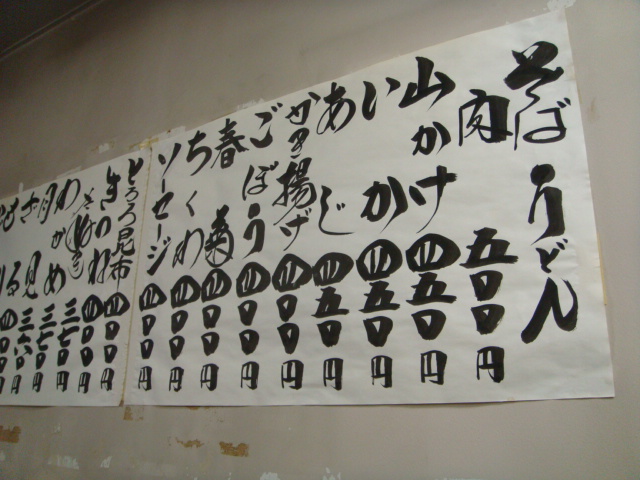 そば うどん
肉 五〇〇円
山かけ 四五〇円
いか 四五〇円
あじ 四五〇円
かき揚げ 四〇〇円
ごぼう 四〇〇円
春菊 四〇〇円
ちくわ 四〇〇円
ソーセージ 四〇〇円
とろろ昆布 四〇〇円
きつね 四〇〇円
わかめ 三七〇円
月見 三七〇円
ざる 三六〇円
もり